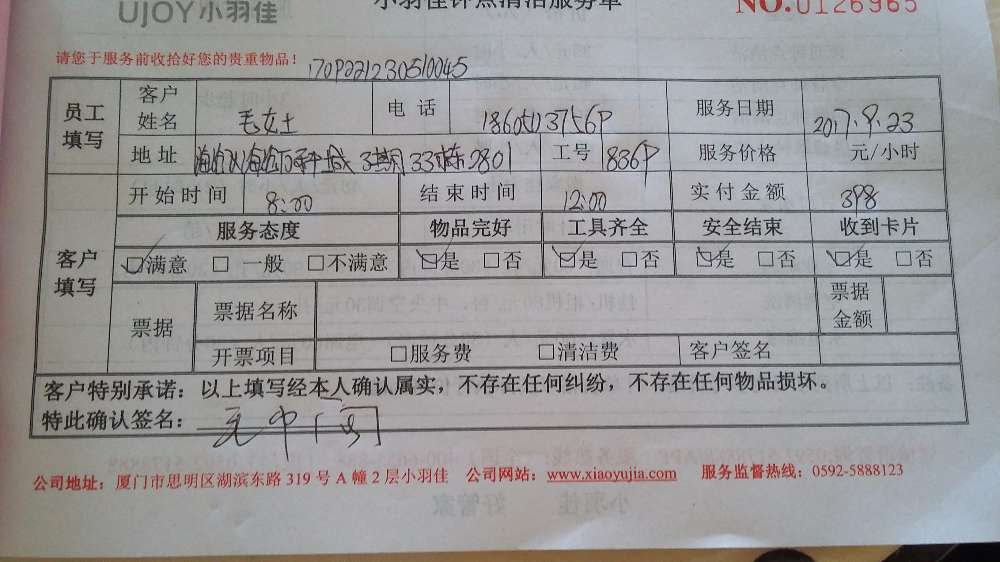 UJOY小羽佳
小羽佳钟点清洁服务单
NO.0126965
请您于服务前收拾好您的贵重物品!
员工填写
客户姓名 毛女士 电话 服务日期 2017.9.23
地址 3期33栋2801 工号 8369 服务价格 元/小时
客户填写
开始时间 8:00 结束时间 12:00 实付金额 398
服务态度 物品完好 工具齐全 安全结束 收到卡片
☑满意 □一般 □不满意 ☑是 □否 ☑是 □否 ☑是 □否 ☑是 □否
票据 票据名称 票据金额
开票项目 □服务费 □清洁费 客户签名
客户特别承诺:以上填写经本人确认属实,不存在任何纠纷,不存在任何物品损坏。
特此确认签名:
公司地址:厦门市思明区湖滨东路319号A幢2层小羽佳 公司网站:www.xiaoyujia.com 服务监督热线:0592-5888123